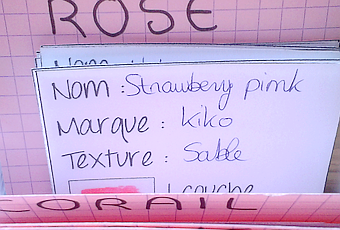 ROSE
Nom : Strawberry pink
Marque : Kiko
Texture : Sable
1 couche
CORAIL